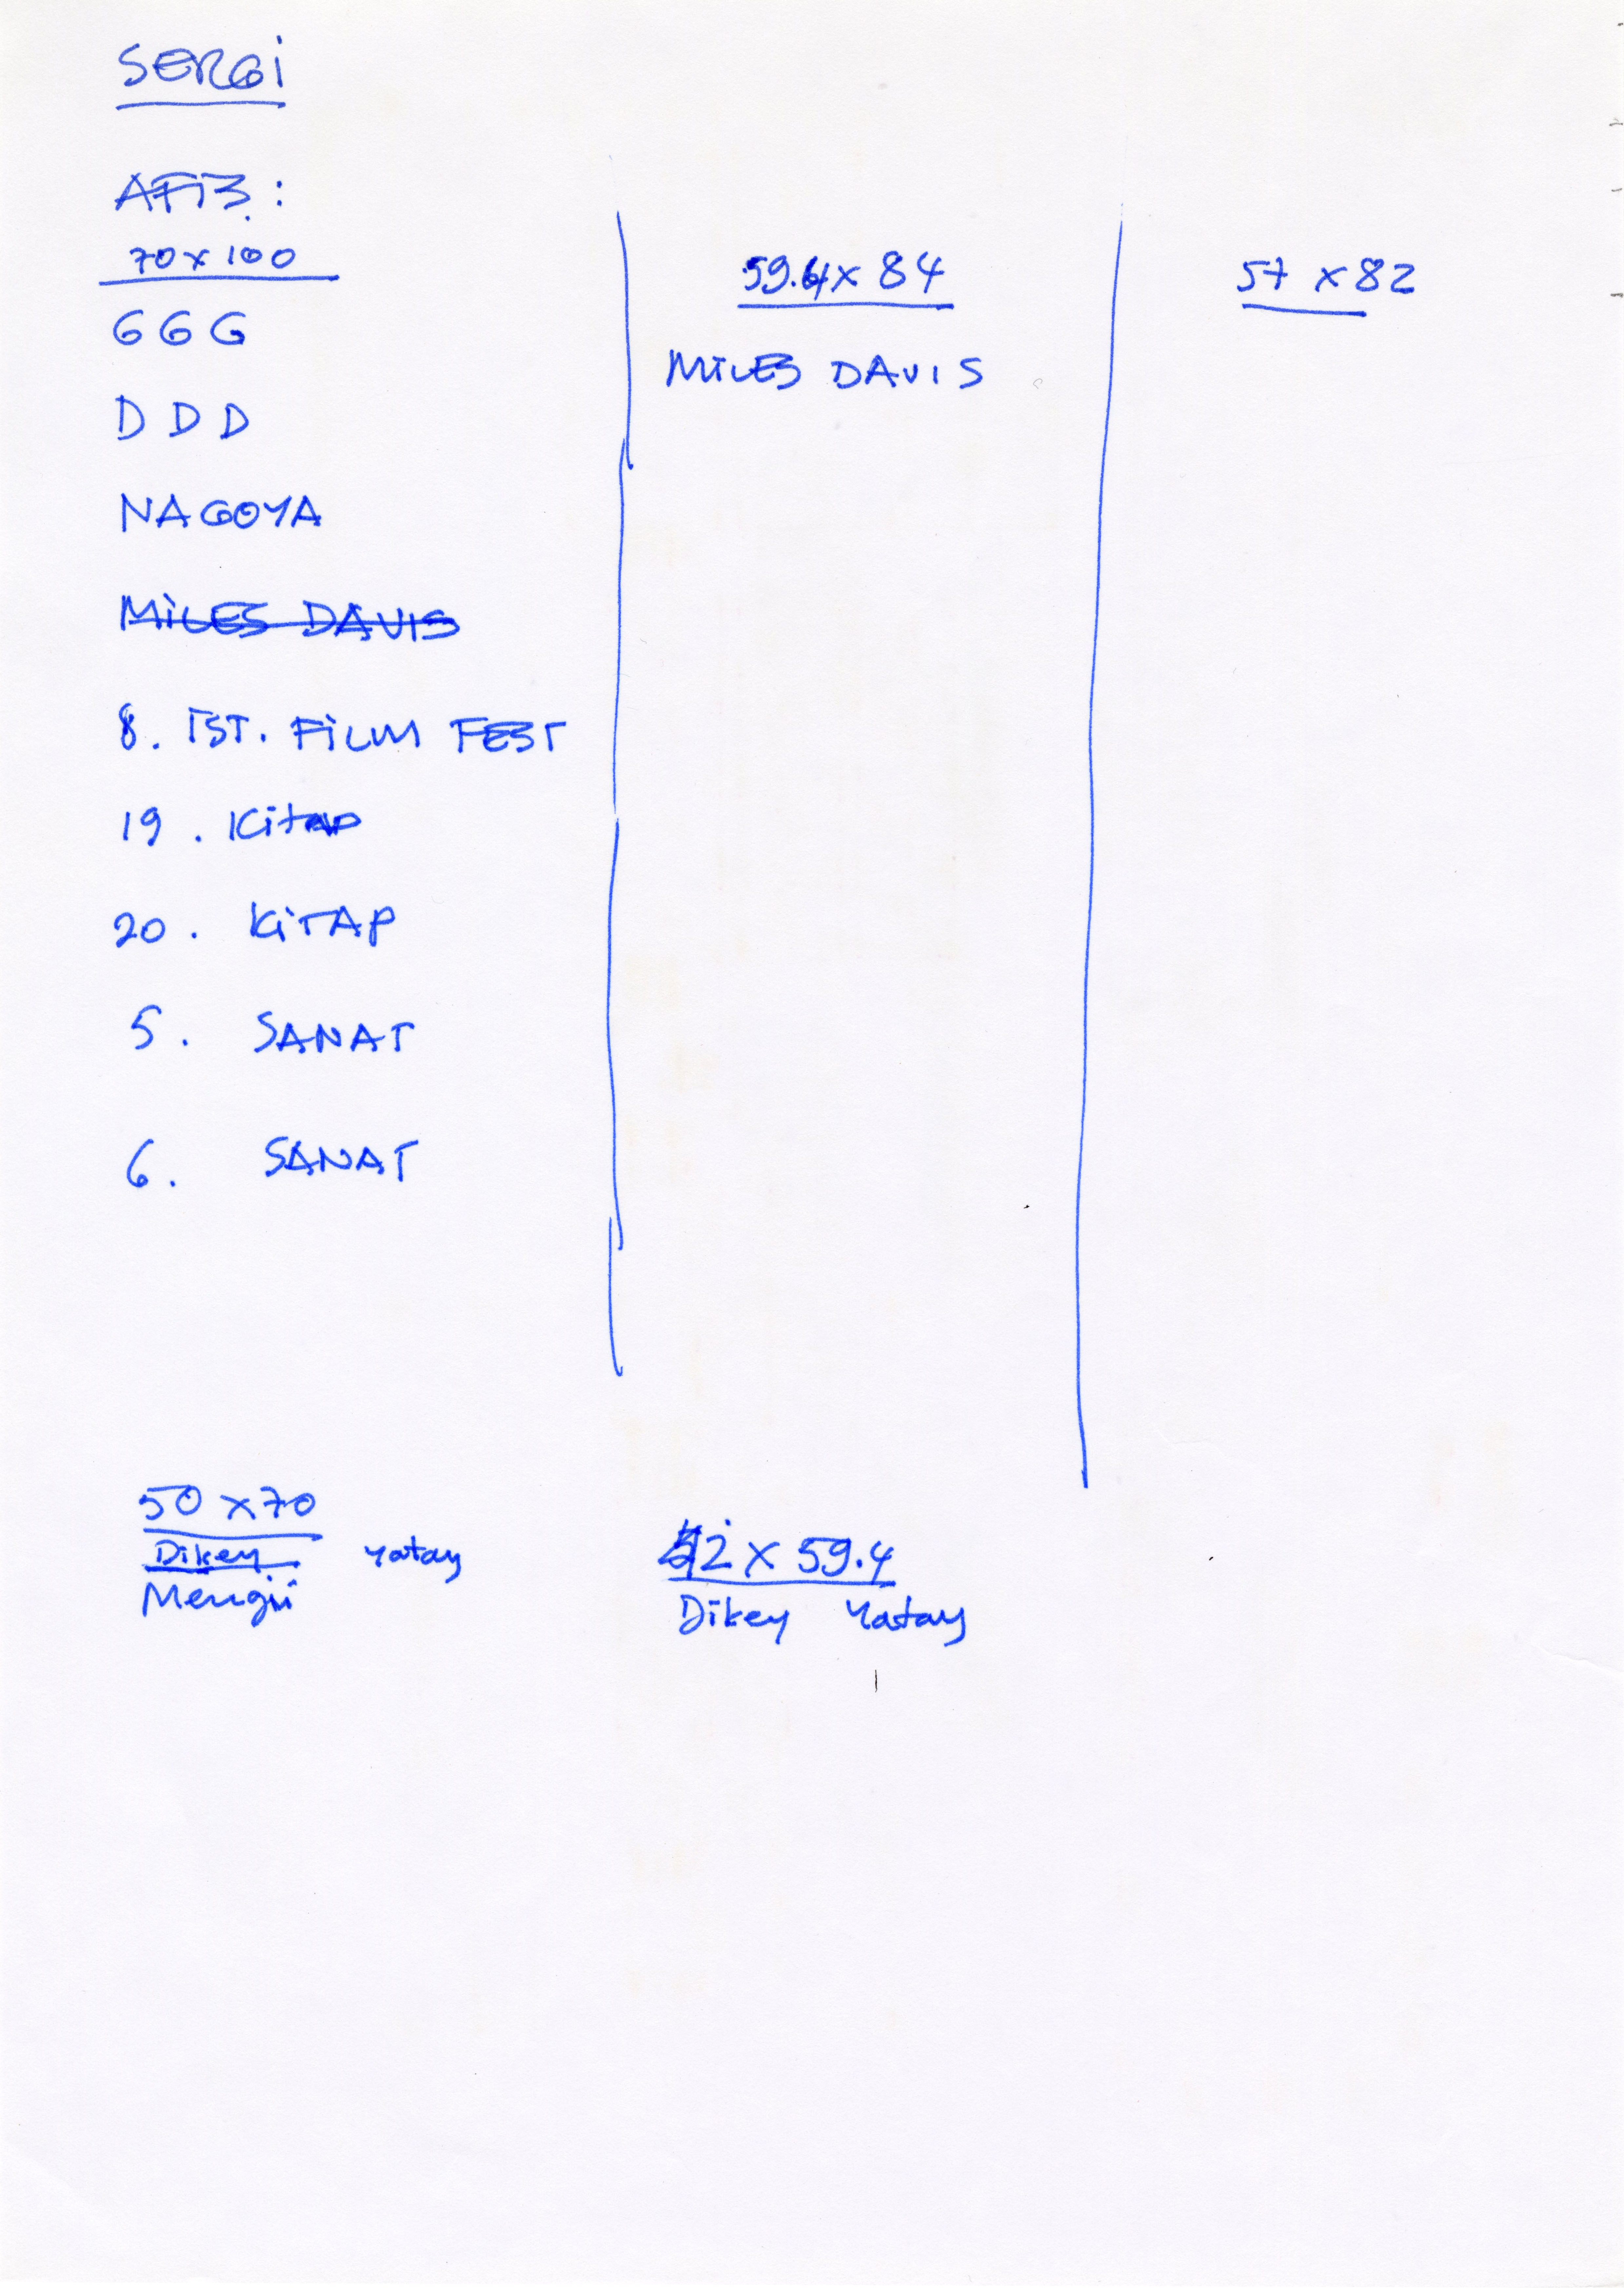 SERGİ
AFİŞ :
70 x 100
GGG
DDD
NAGOYA
MİLES DAVIS
8. İST. FİLM FEST
19 . Kitap
20 . KİTAP
5 . SANAT
6 . SANAT
59.4 x 84
MİLES DAVIS
57 x 82
50 x 70
Dikey Yatay
Mengü
42 x 59.4
Dikey Yatay